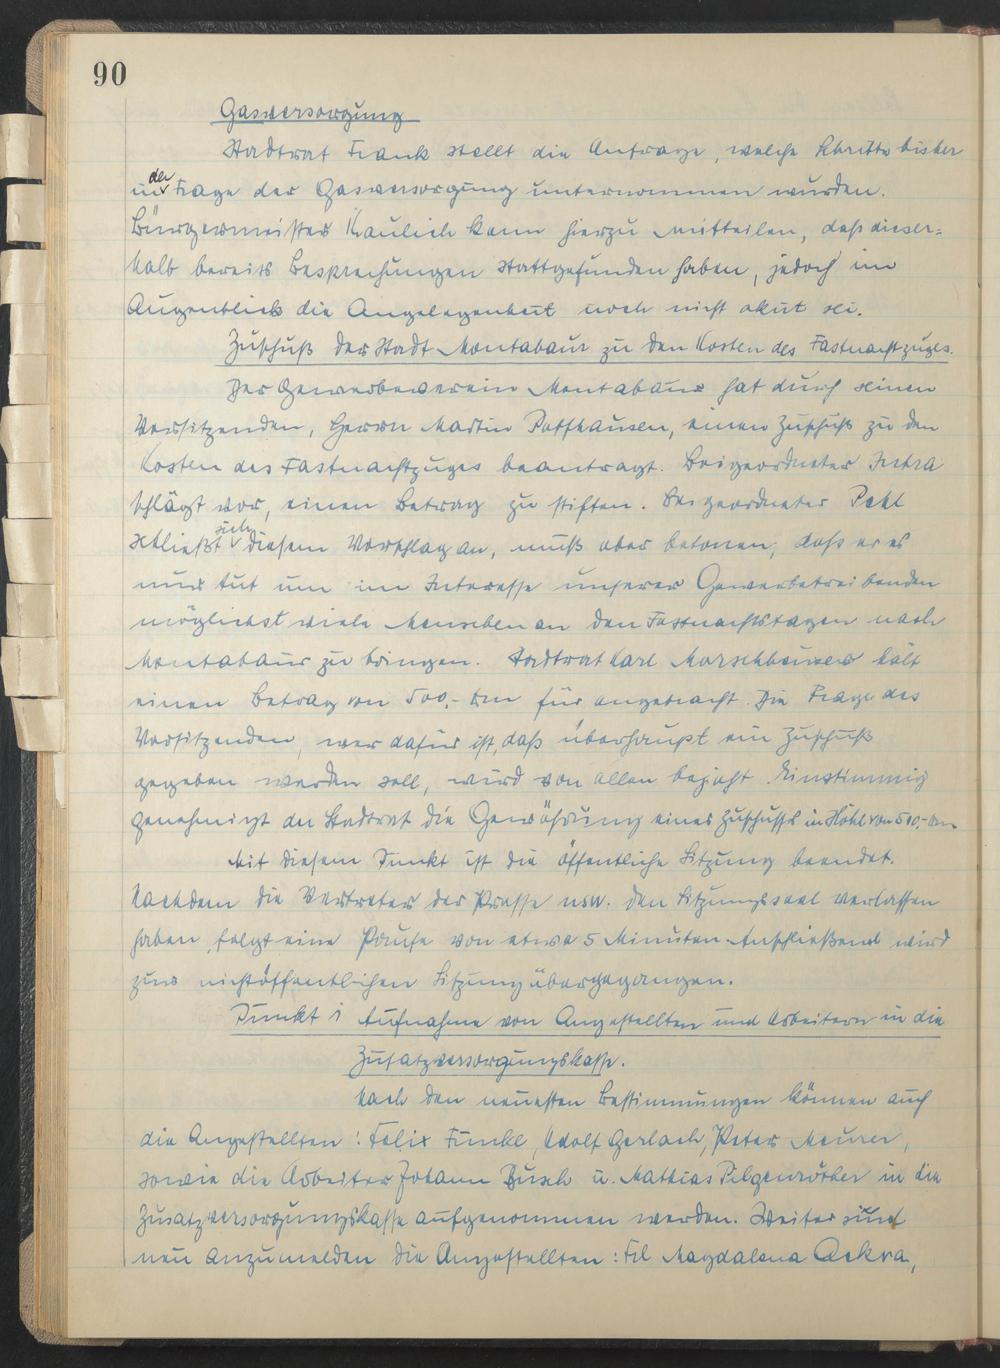 90
Gasversorgung
Stadtrat Frank stellt die Anfrage, welche Schritte bisher
in der Frage der Gasversorgung unternommen wurden.
Bürgermeister Kaulich kann hierzu mitteilen, daß dieser=
halb bereits Besprechungen stattgefunden haben, jedoch im
Augenblick die Angelegenheit noch nicht akut sei.
Zuschuß der Stadt Montabaur zu den Kosten des Fastnachtzuges.
Der Gewerbeverein Montabaur hat durch seinen
Vorsitzenden, Herrn Martin Potthausen, einen Zuschuß zu den
Kosten des Fastnachtzuges beantragt. Beigeordneter
schlägt vor, einen Betrag zu stiften. Beigeordneter Pehl
schließt sich diesem Vorschlag an, muß aber betonen, daß er es
nur tut um im Interesse unserer Gewerbetreibenden
möglichst viele Menschen an den Fastnachtstagen nach
Montabaur zu bringen. Stadtrat Karl Morschhäuser hält
einen Betrag von 500,- DM für angebracht. Die Frage des
Vorsitzenden, wer dafür ist, daß überhaupt ein Zuschuß
gegeben werden soll, wird von allen bejaht. Einstimmig
genehmigt der Stadtrat die Gewährung eines Zuschusses in Höhe von 500,- DM
Mit diesem Punkt ist die öffentliche Sitzung beendet.
Nachdem die Vertreter der Presse usw. den Sitzungssaal verlassen
haben, folgt eine Pause von etwa 5 Minuten. Anschließend wird
zur nichtöffentlichen Sitzung übergegangen.
Punkt 1 Aufnahme von Angestellten und Arbeitern in die
Zusatzversorgungskasse.
Nach den neuesten Bestimmungen können auch
die Angestellten: Felix Funke, Adolf Gerlach, Peter Meurer,
sowie die Arbeiter Johann Busch u. Mathias Pilgenröther in die
Zusatzversorgungskasse aufgenommen werden. Weiter sind
neu anzumelden die Angestellten: Frl Magdalena Ackva,